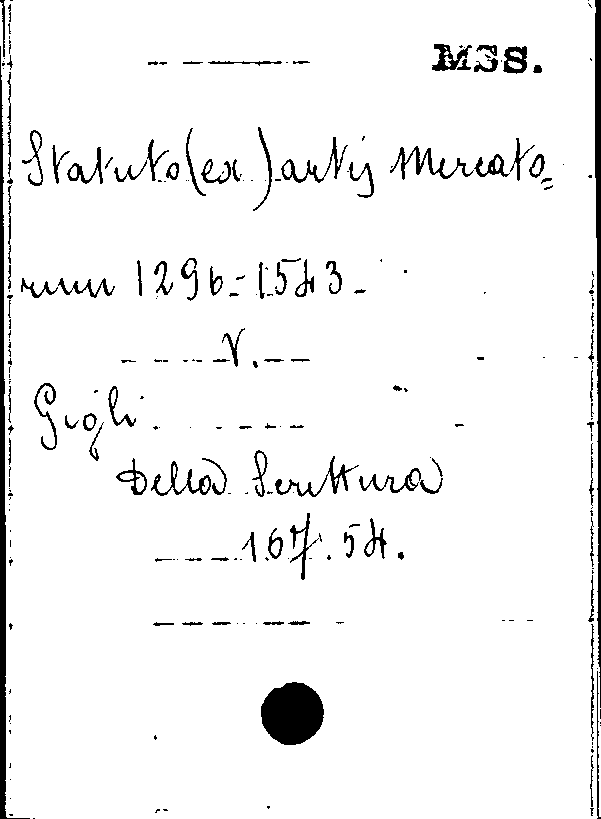 MSS.
Statuto (ex) artis Mercato=
rum 1296-1543-
V.
Gigli
Della Scrittura
167.54.